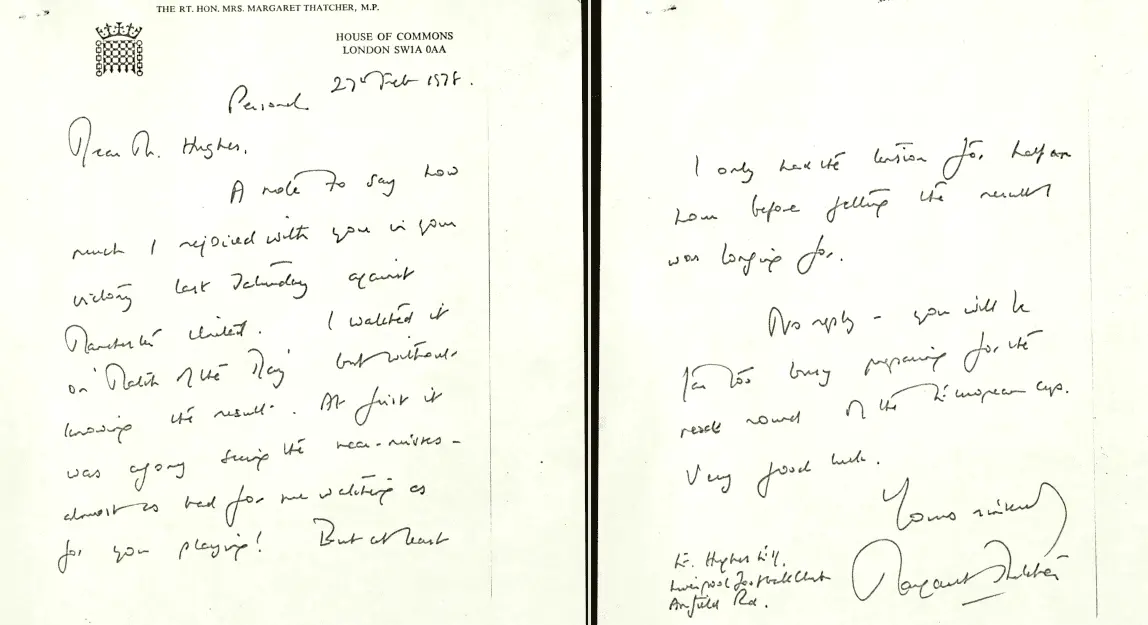 THE RT. HON. MRS. MARGARET THATCHER, M.P.
HOUSE OF COMMONS
LONDON SW1A 0AA
Personal
27th Feb 1978.
Dear Mr. Hughes,
A note to say how
much I rejoiced with you in your
victory last Saturday against
Manchester United. I watched it
on 'Match of the Day' but without
knowing the result. At first it
was agony seeing the near-misses -
almost as bad for me watching as
for you playing! But at least
I only had the tension for half an
hour before getting the result I
was longing for.
No reply - you will be
far too busy preparing for the
next round of the European Cup.
Very good luck.
Yours sincerely
Margaret Thatcher
E. Hughes Esq.
Liverpool Football Club
Anfield Rd.